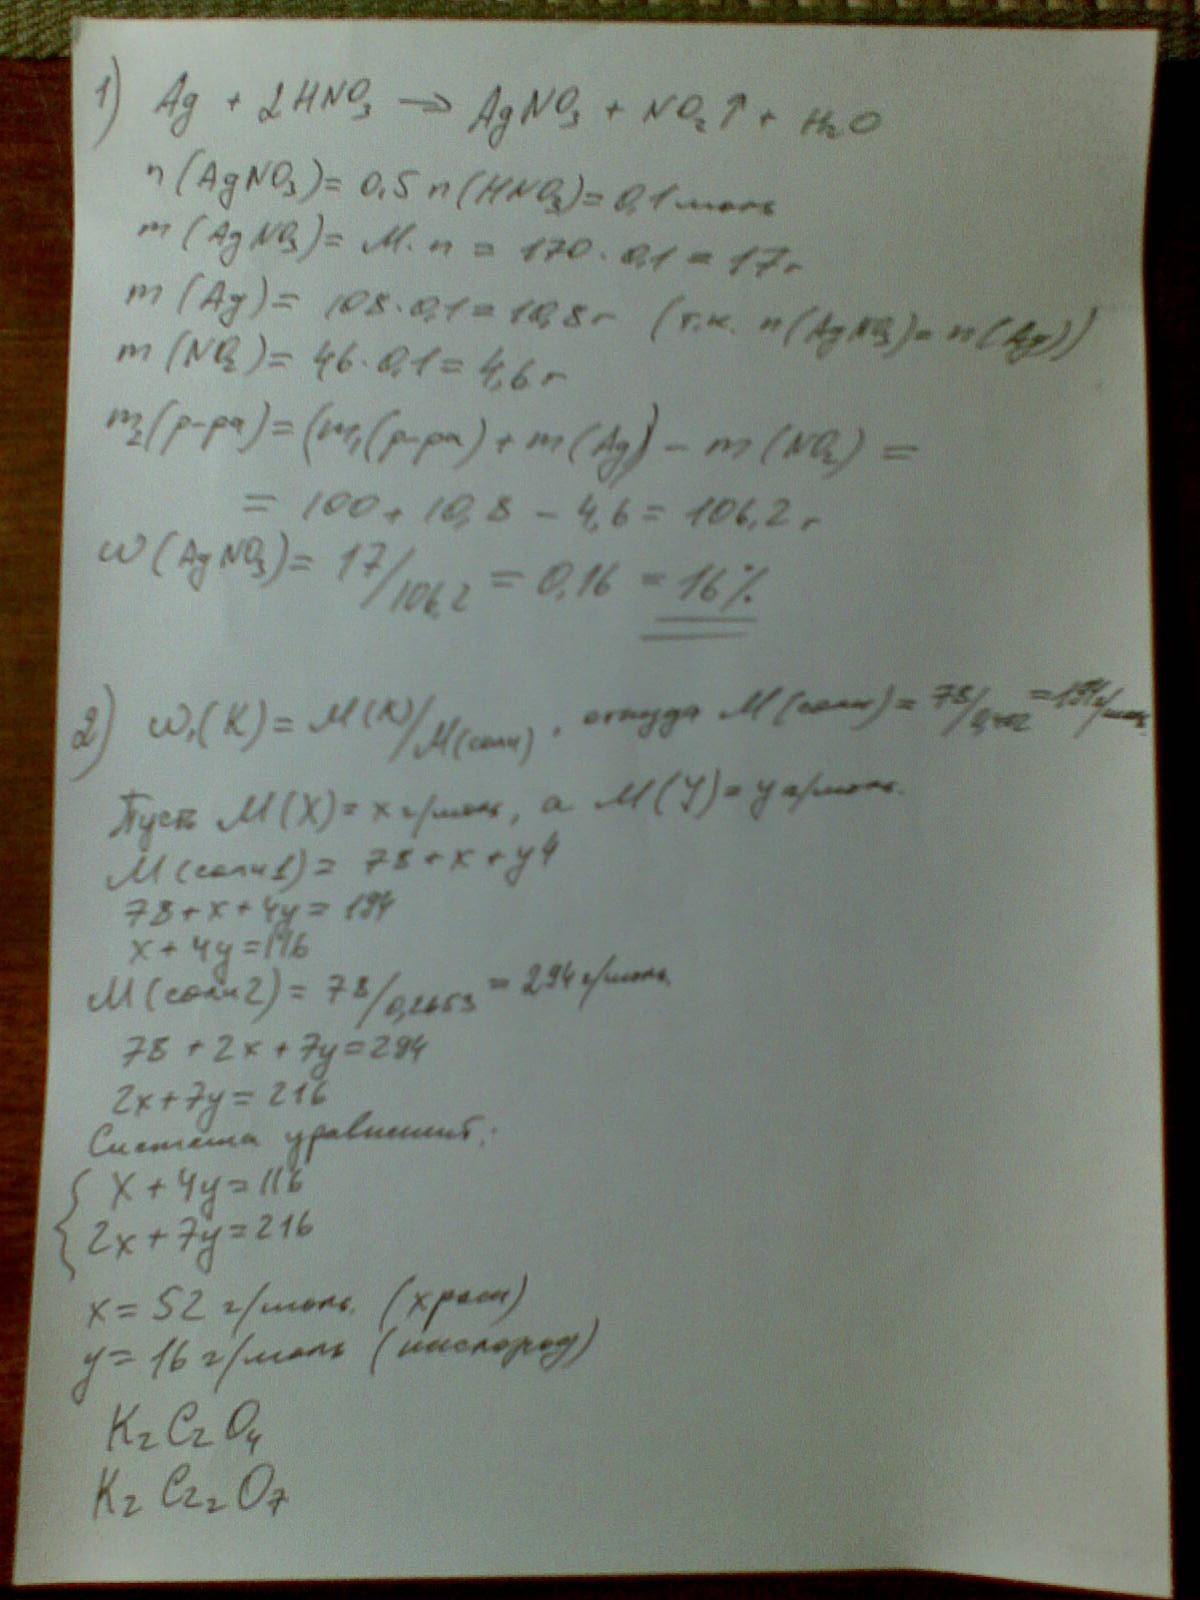 1) Ag + 2HNO₃ → AgNO₃ + NO₂↑ + H₂O
n(AgNO₃) = 0,5 n(HNO₃) = 0,1 моль
m(AgNO₃) = M·n = 170·0,1 = 17 г
m(Ag) = 108·0,1 = 10,8 г (т.к. n(AgNO₃) = n(Ag))
m(NO₂) = 46·0,1 = 4,6 г
m₂(р-ра) = (m₁(р-ра) + m(Ag)) - m(NO₂) =
= 100 + 10,8 - 4,6 = 106,2 г
w(AgNO₃) = 17/106,2 = 0,16 = 16%
2) w₁(K) = M(K)/M(соли), откуда M(соли) = 78/0,402 = 194 г/моль
Пусть M(X) = x г/моль, а M(Y) = y г/моль.
M(соли1) = 78 + x + y4
78 + x + 4y = 194
x + 4y = 116
M(соли2) = 78/0,2653 = 294 г/моль
78 + 2x + 7y = 294
2x + 7y = 216
Система уравнений:
{ x + 4y = 116
2x + 7y = 216
x = 52 г/моль (хром)
y = 16 г/моль (кислород)
K₂CrO₄
K₂Cr₂O₇